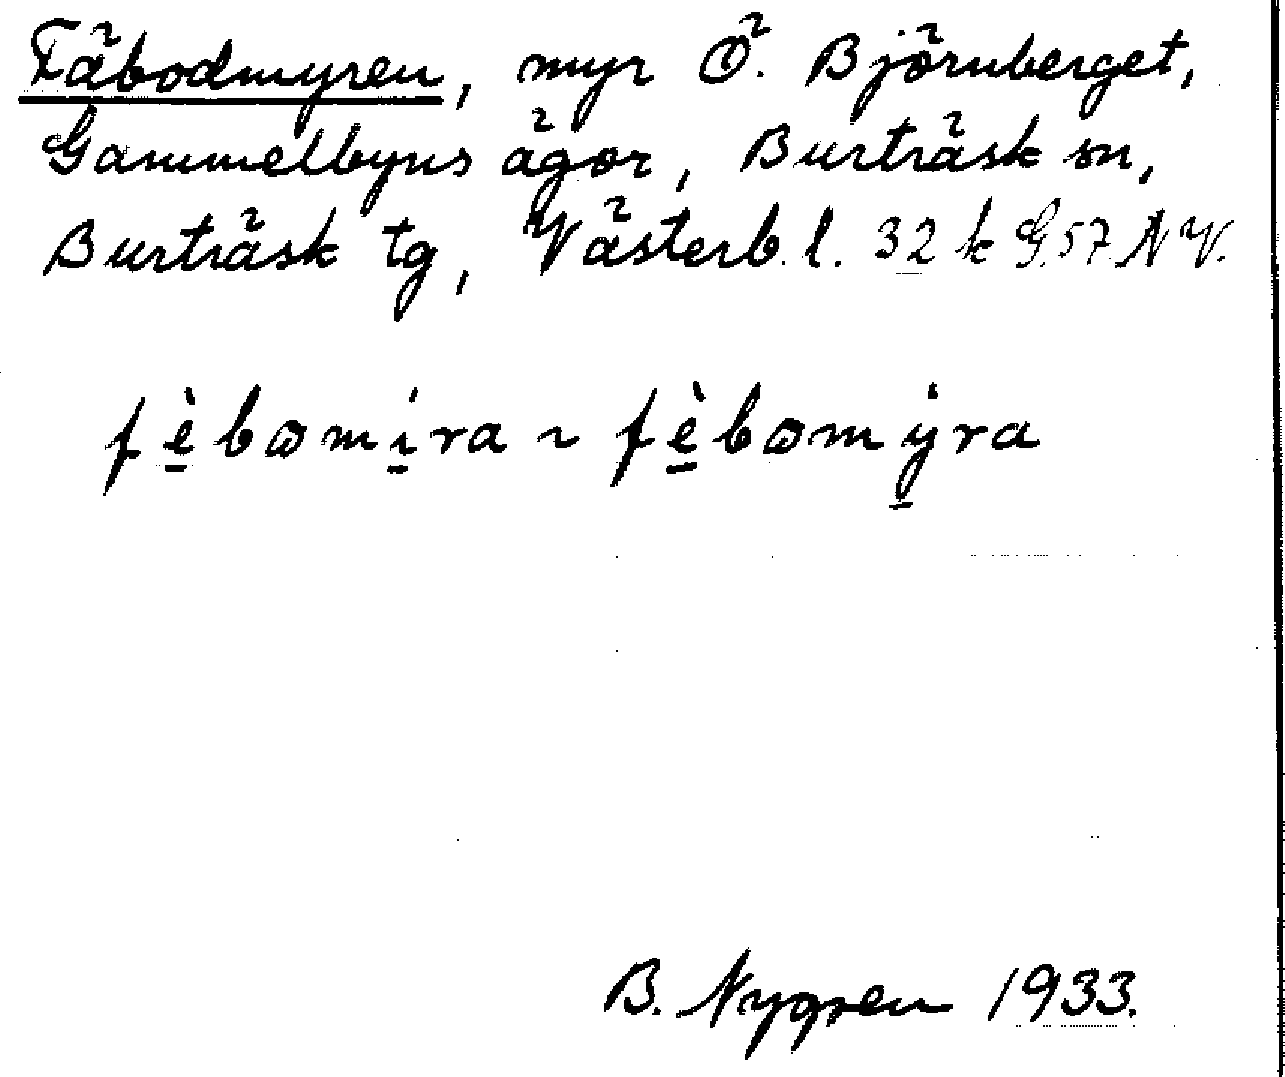 Fäbodmyren, myr Ö. Björnberget,
Gammelbyns ägor, Burträsk sn,
Burträsk tg, Västerb. l. 32 k G.57 N V.
fè̱bωmi̱ra ~ fè̱bωmy̱ra
B. Nygren 1933.